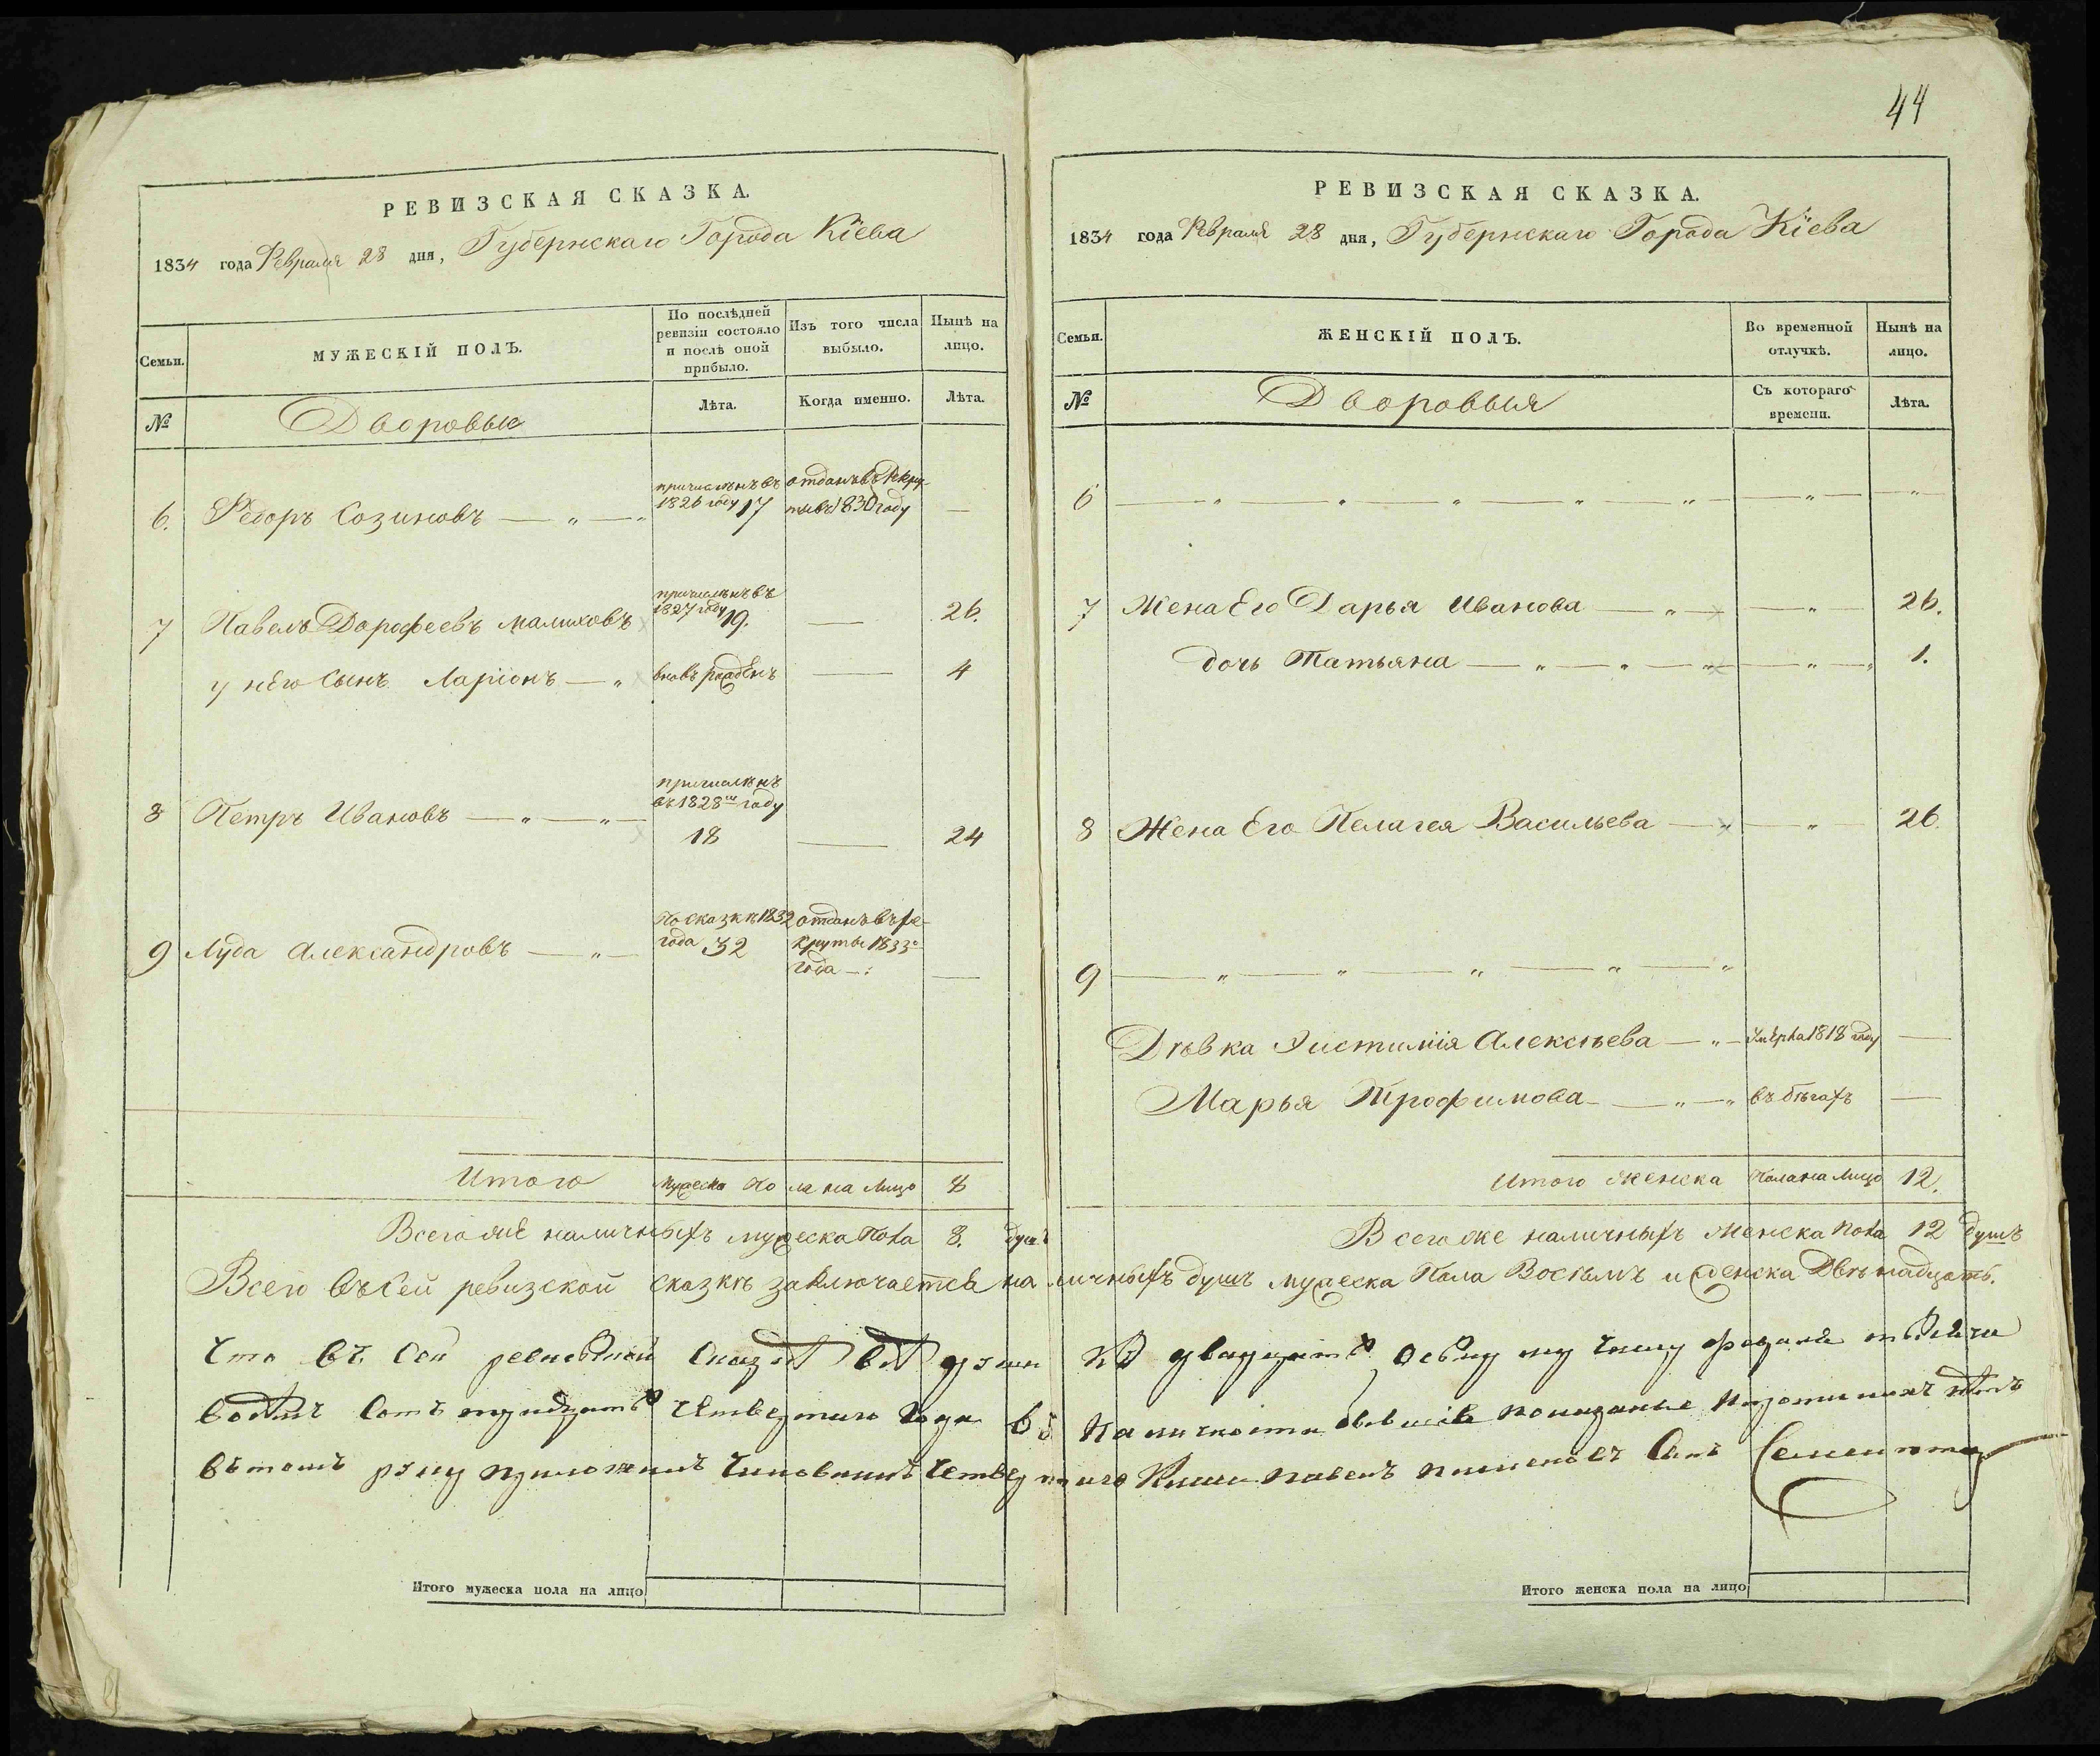 44
РЕВИЗСКАЯ СКАЗКА.
1834 года Февраля 28 дня, Губернскаго Города Кіева
Семьи.
МУЖЕСКІЙ ПОЛЪ.
По послѣдней ревизіи состояло и послѣ оной прибыло.
Изъ того числа выбыло.
Нынѣ на лицо.
№
Дворовые
Лѣта.
Когда именно.
Лѣта.
6. Ѳедоръ Созиновъ — „ — „ 1826 году 17 отданъ въ Рекру-
ты въ 1830 году —
7 Павелъ Дорофеевъ Малиховъ 1827 году 19. — 26.
у него Сынъ Ларіонъ — „ вновь рожденъ — 4
8 Петръ Ивановъ — „ — „ —
въ 1828мъ году
18 — 24
9 Луда Александровъ — „ — По сказкѣ 1832 отданъ въ ре-
года 32 круты 1833го
года —: —
Итого мужеска пола на лицо 8
Всего же наличныхъ мужеска пола 8. душъ
РЕВИЗСКАЯ СКАЗКА.
1834 года Февраля 28 дня, Губернскаго Города Кіева
Семьи.
ЖЕНСКІЙ ПОЛЪ.
Во временной отлучкѣ.
Нынѣ на лицо.
№
Дворовыя
Съ котораго времени.
Лѣта.
6 — „ — „ — „ — „ — „ — — „ — „
7 Жена Его Дарья Иванова — „ — — „ — 26.
дочь Татьяна — „ — „ — „ — „ — „ 1.
8 Жена Его Пелагея Васильева — „ — „ — 26.
9 — „ — „ — „ — „ — „
Дѣвка Алексѣева — „ — Умерла 1818 году —
Марья Трофимова — „ — „ въ бѣгахъ —
Итого женска пола на лицо 12.
Всего же наличныхъ женска пола 12 душъ
Всего въ сей ревизской сказкѣ заключается наличныхъ душъ мужеска пола Восемъ и женска Двѣнадцать.
Что въ Сей Сказкѣ всѣ души къ двадцать осьмому числу февраля тысяча
восемъ Сотъ тридцать четвертаго года въ наличности показаны
въ томъ руку приложилъ Чиновникъ Павелъ Сынъ
Итого мужеска пола на лицо
Итого женска пола на лицо